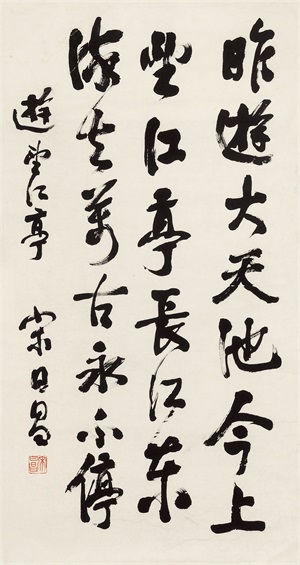 昨遊大天池今上
望江亭長江東
流去萬古永不停
遊望江亭 宋日昌